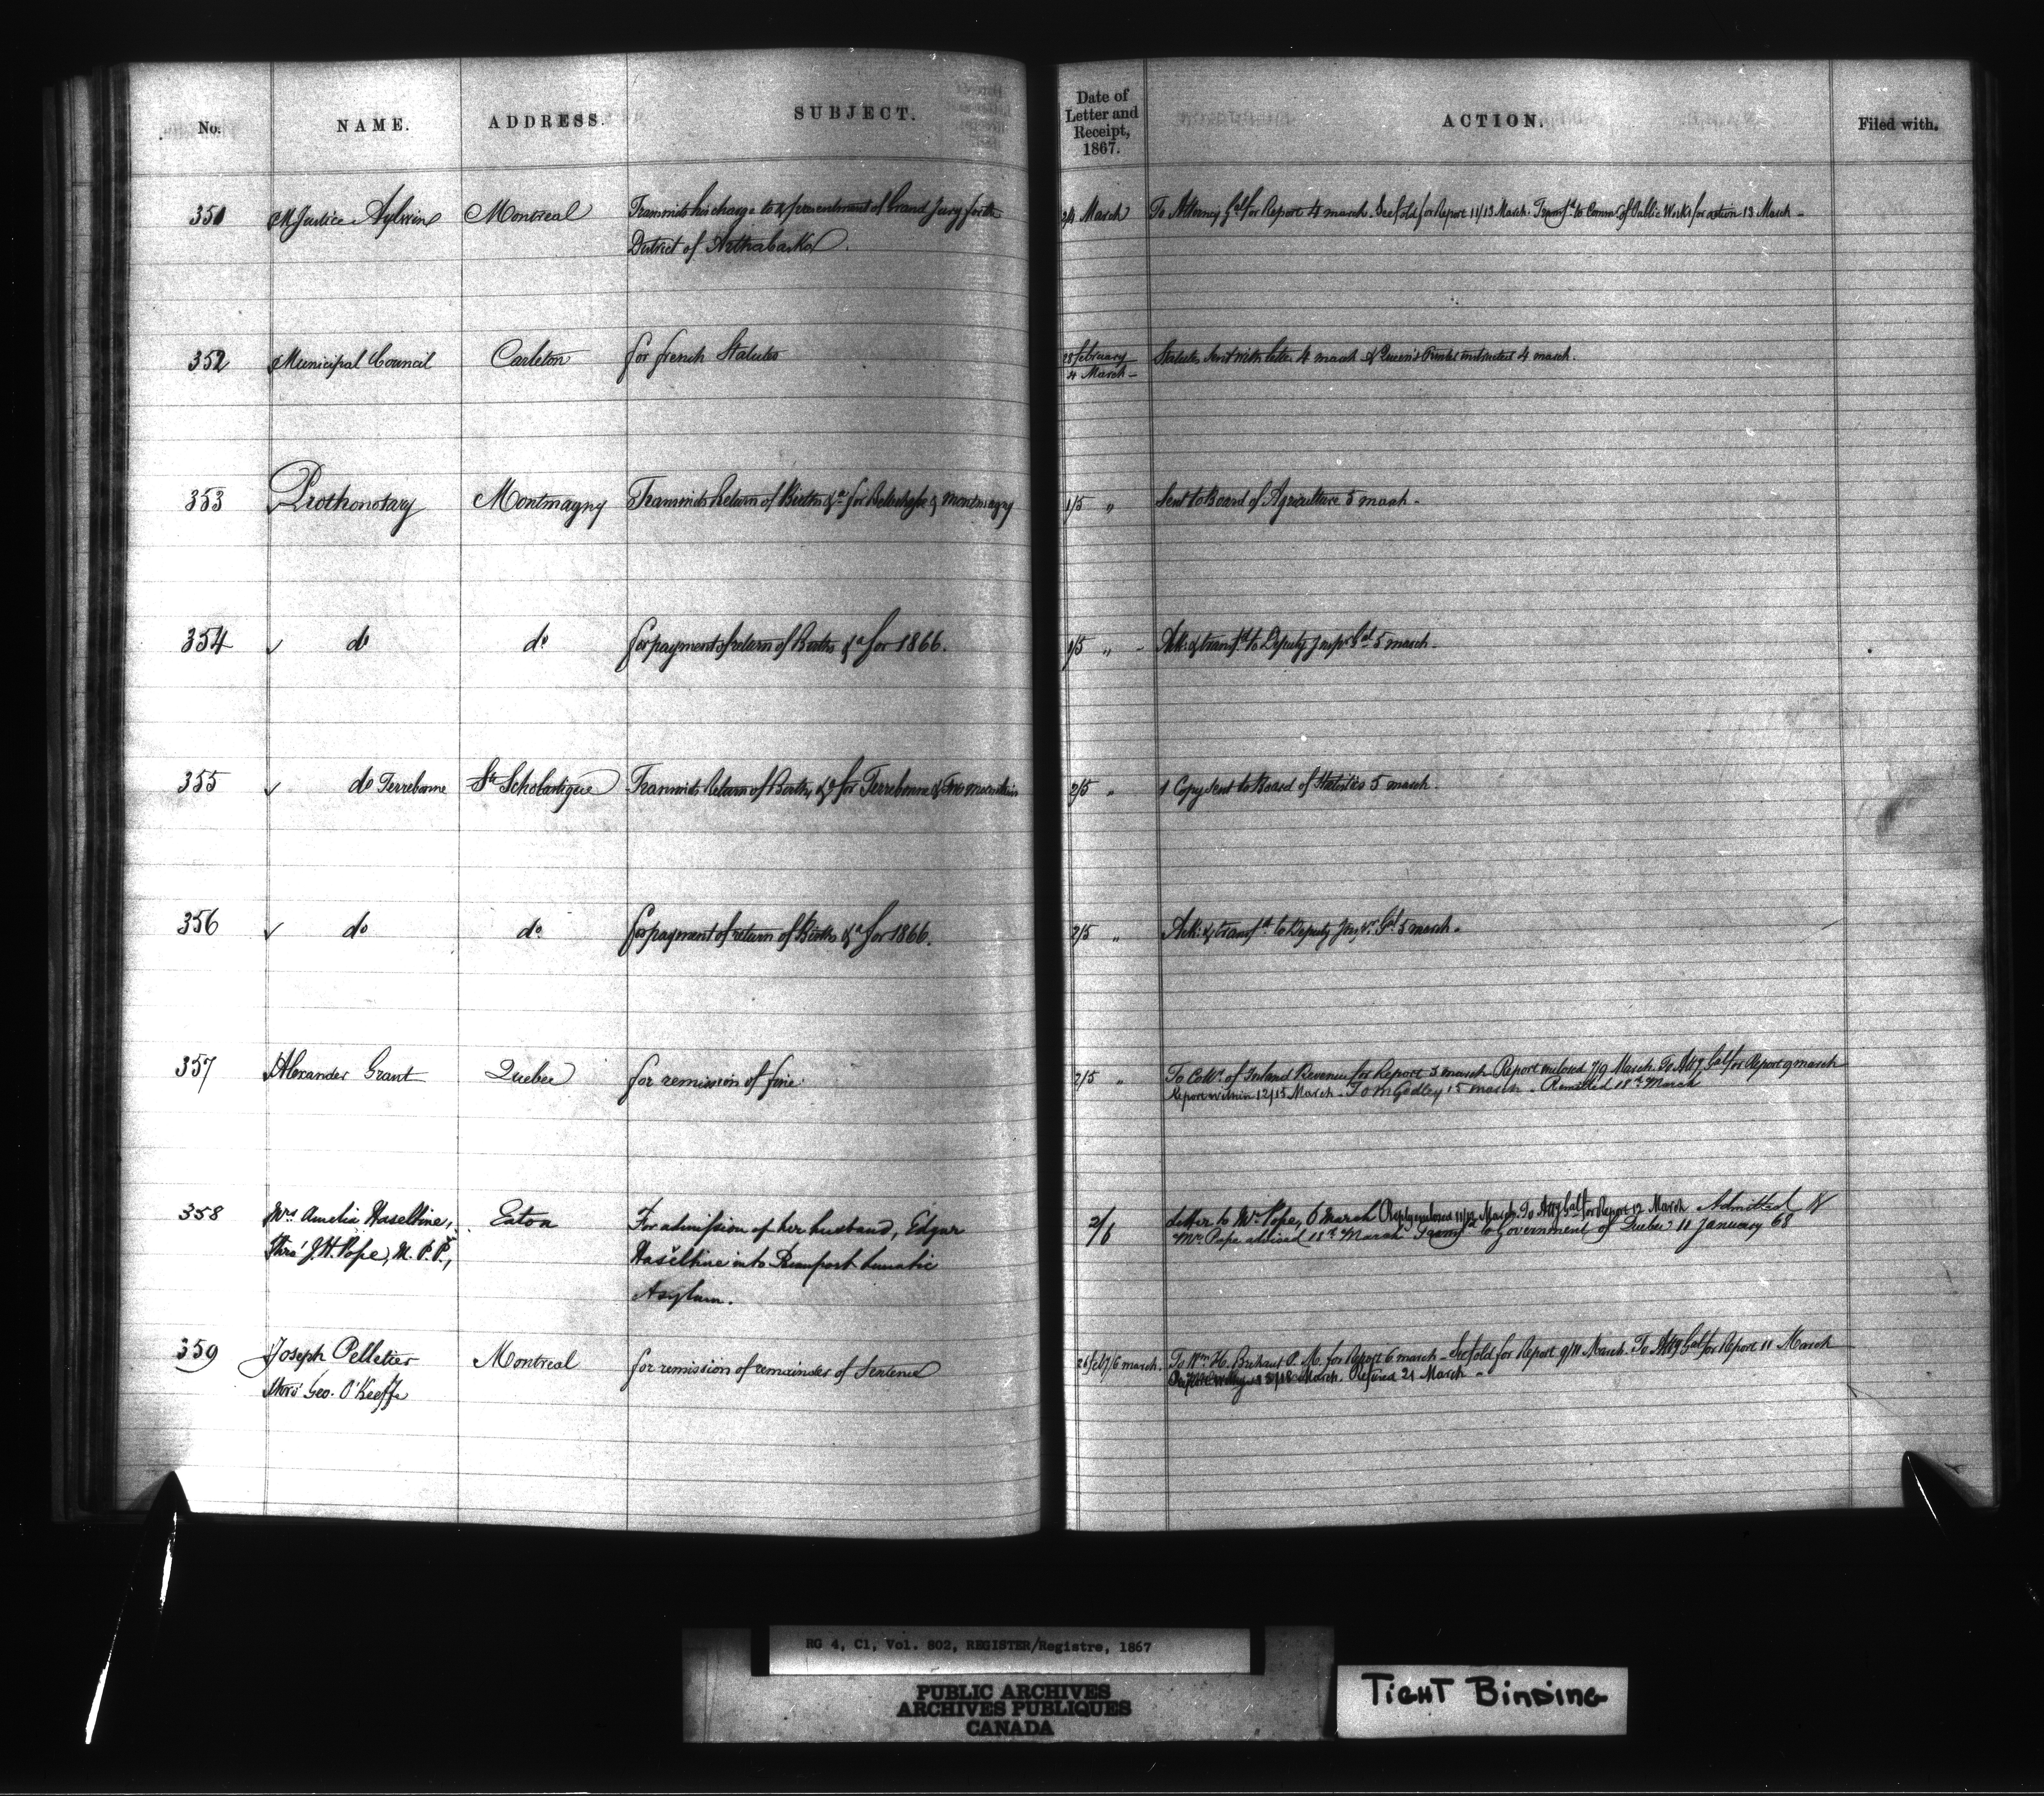 No. NAME. ADDRESS. SUBJECT. Date of Letter and Receipt, 1867. ACTION. Filed with.
351 Mr Justice Aylwin Montreal Transmits his charge to & presentment of Grand Jury for the 2/4 March To Attorney Gal for Report 4 march. See fold for Report 11/13 March. Transfd to Commr of Public Works for action 13 March -
District of Arthabaska.
352 Municipal Council Carleton for french Statutes 28 february Statutes sent with letter 4 march & Queen's Printer instructed 4 march.
4 March -
353 Prothonotary Montmagny Transmits Return of Births &a for Bellechasse & Montmagny 1/5 " Sent to Board of Agriculture 5 march -
354 do do for payment of return of Births &a for 1866. 1/5 " - Ack: & transfd to Deputy Inspr Gal 5 march -
355 do Terrebonne Ste Scholastique Transmits Return of Births, &a for Terrebonne & Two Mountains 2/5 " 1 Copy sent to Board of Statistics 5 march.
356 do do for payment of return of Births &a for 1866. 2/5 " Ack: & transfd to Deputy Inspr Gal 5 march -
357 Alexander Grant Quebec for remission of fine. 2/5 " To Comr of Inland Revenue for Report 5 march Report enclosed 7/9 March. To Atty Gal for Report 9 march
Report within 12/15 March - To Mr Godley 15 march - Remitted 18th March
358 Mrs Amelia Haseltine, Eaton For admission of her husband, Edgar 2/6 Letter to Mr Pope, 6 March Reply enclosed 11/12 March. To Atty Gal for Report 12 March Admitted &
Thro' J. H. Pope, M. P. P., Haseltine into Beauport Lunatic Mr Pope advised 18th March Transfd to Government of Quebec 11 January 68
Asylum.
359 Joseph Pelletier Montreal for remission of remainder of Sentence 26 feb/6 march. To Wm H. Brehaut P. M. for Report 6 march - See fold for Report 9/11 March. To Atty Gal for Report 11 March
Thro' Geo. O'Keeffe 15/18 March. Refused 21 March -
RG 4, C1, Vol. 802, REGISTER/Registre, 1867
PUBLIC ARCHIVES
ARCHIVES PUBLIQUES
CANADA
TIGHT BINDING